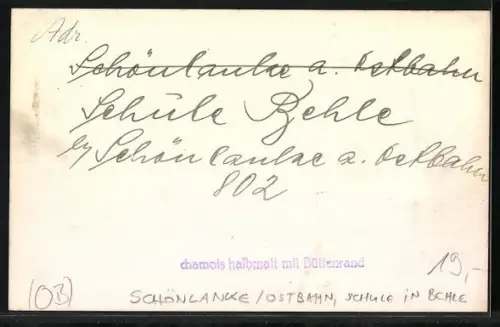 Adr.
Schönlanke a. Ostbahn
Schule Behle
by Schönlanke a. Ostbahn
802
chamois halbmatt mit Büttenrand
19,-
(OB)
SCHÖNLANKE/OSTBAHN, SCHULE IN BEHLE